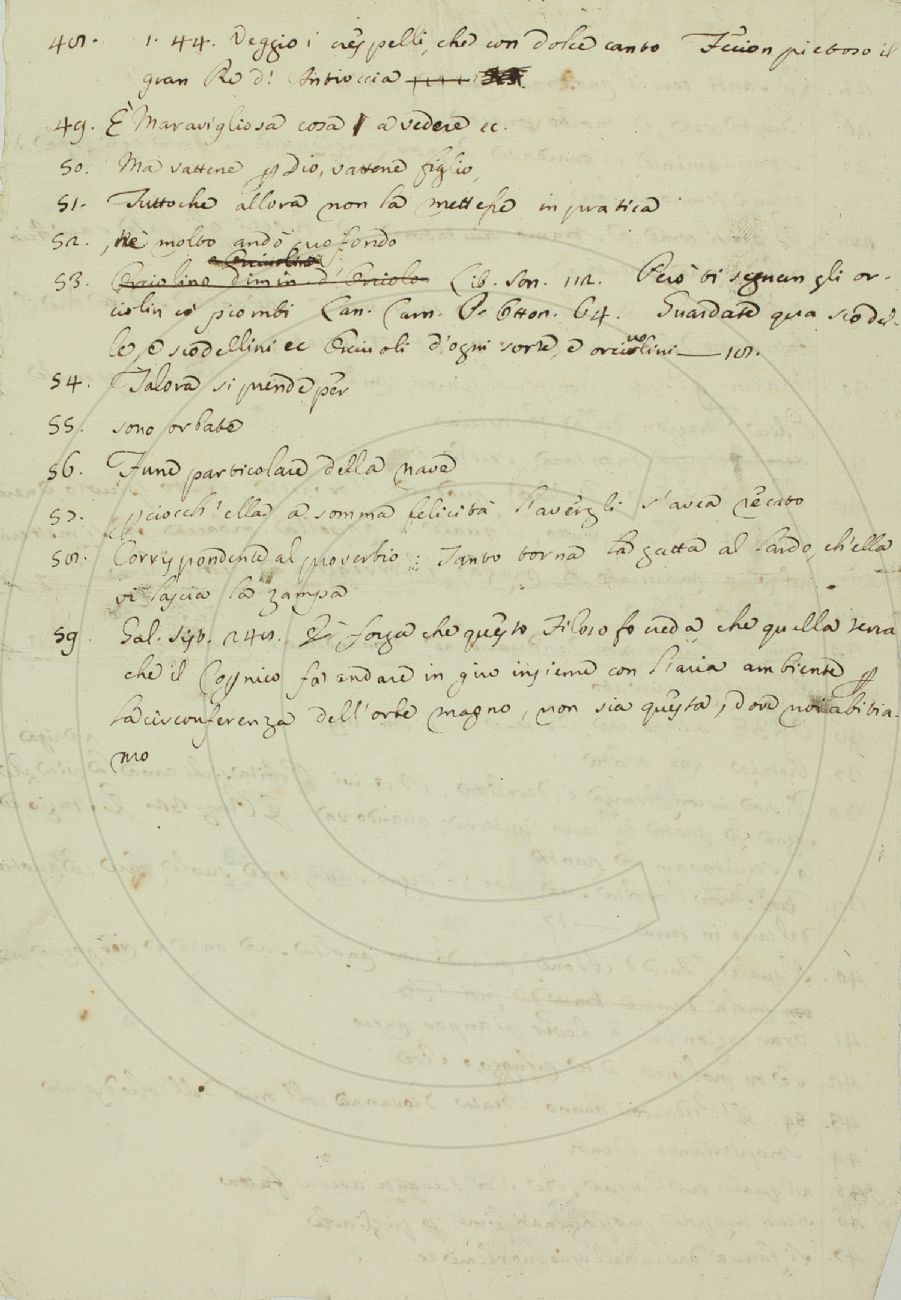 48. 1. 44. Veggio i crespelli, che con dolce canto Fecion pietoso il
gran Re d'Antioccia
49. È Maravigliosa cosa a vedere ec.
50. Ma vattene p Dio, vattene figlio,
51. Tuttoche allora non la mettesse in pratica
52. , Nè molto andò profondo
53. Orciolino dimin. d'Orciolo Lib. Son. 112. Però ti segnan gli or-
ciolin co' piombi Can. Carn. P. Otton. 64. Guardate qua scodel-
le, e scodellini ec Orciuoli d'ogni sorte, e orciuolini — 18.
54. Talora si prende per
55. sono orbate
56. Fune particolare della nave
57. pciocch'ella a somma felicità l'avergli s'avea recato
58. Corrispondente al proverbio : Tanto torna la gatta al lardo, ch'ella
vi lascia la zampa
59. Gal. Sist. 248. È forza che questo Filosofo creda che quella terra
che il Copnico fa andare in giro insieme con l'aria ambiente p
la circonferenza dell'orbe magno, non sia questa, dove noi abitia-
mo